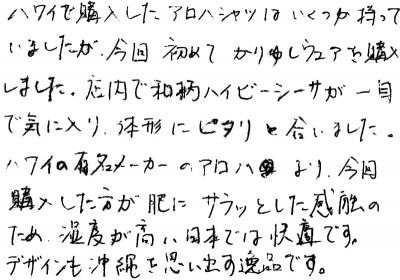 ハワイで購入したアロハシャツはいくつか持って
いましたが、今回 初めて かりゆしウェアを購入
しました。店内で和柄ハイビーシーサが一目
で気に入り、体形にピタリと合いました。
ハワイの有名メーカーのアロハより、今回
購入した方が肌にサラッとした感触の
ため、湿度が高い日本では快適です。
デザインも沖縄を思い出す逸品です。